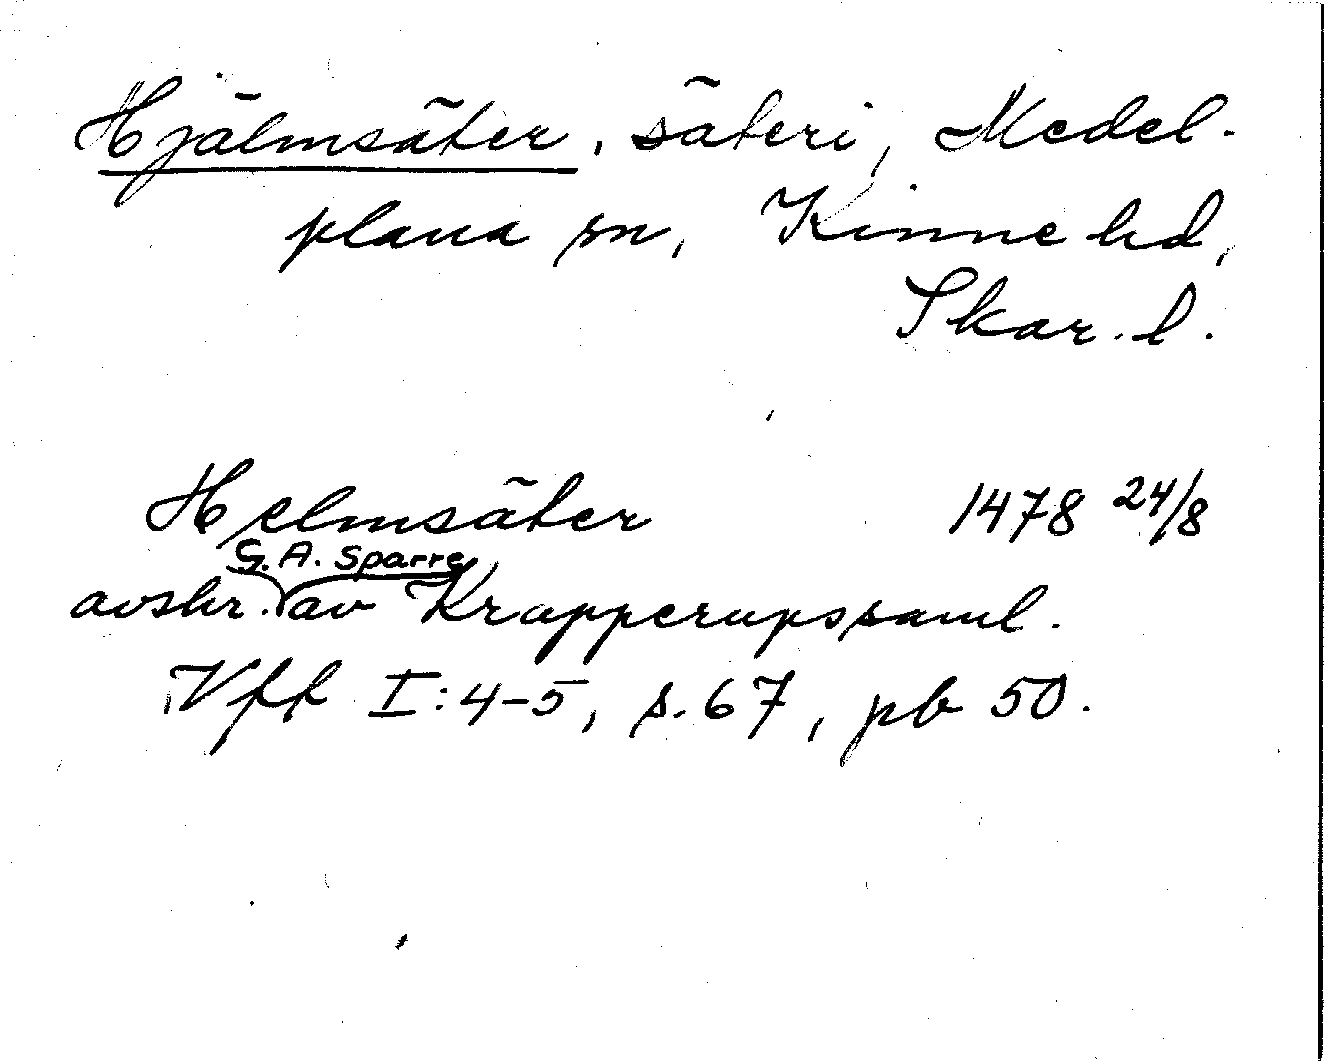 Hjälmsäter, säteri, Medel-
plana sn, Kinne hd,
Skar. l.
Helmsäter 1478 24/8
G. A. Sparre
avskr. av Krapperupssaml.
Vff I:4-5, s. 67, pb 50.